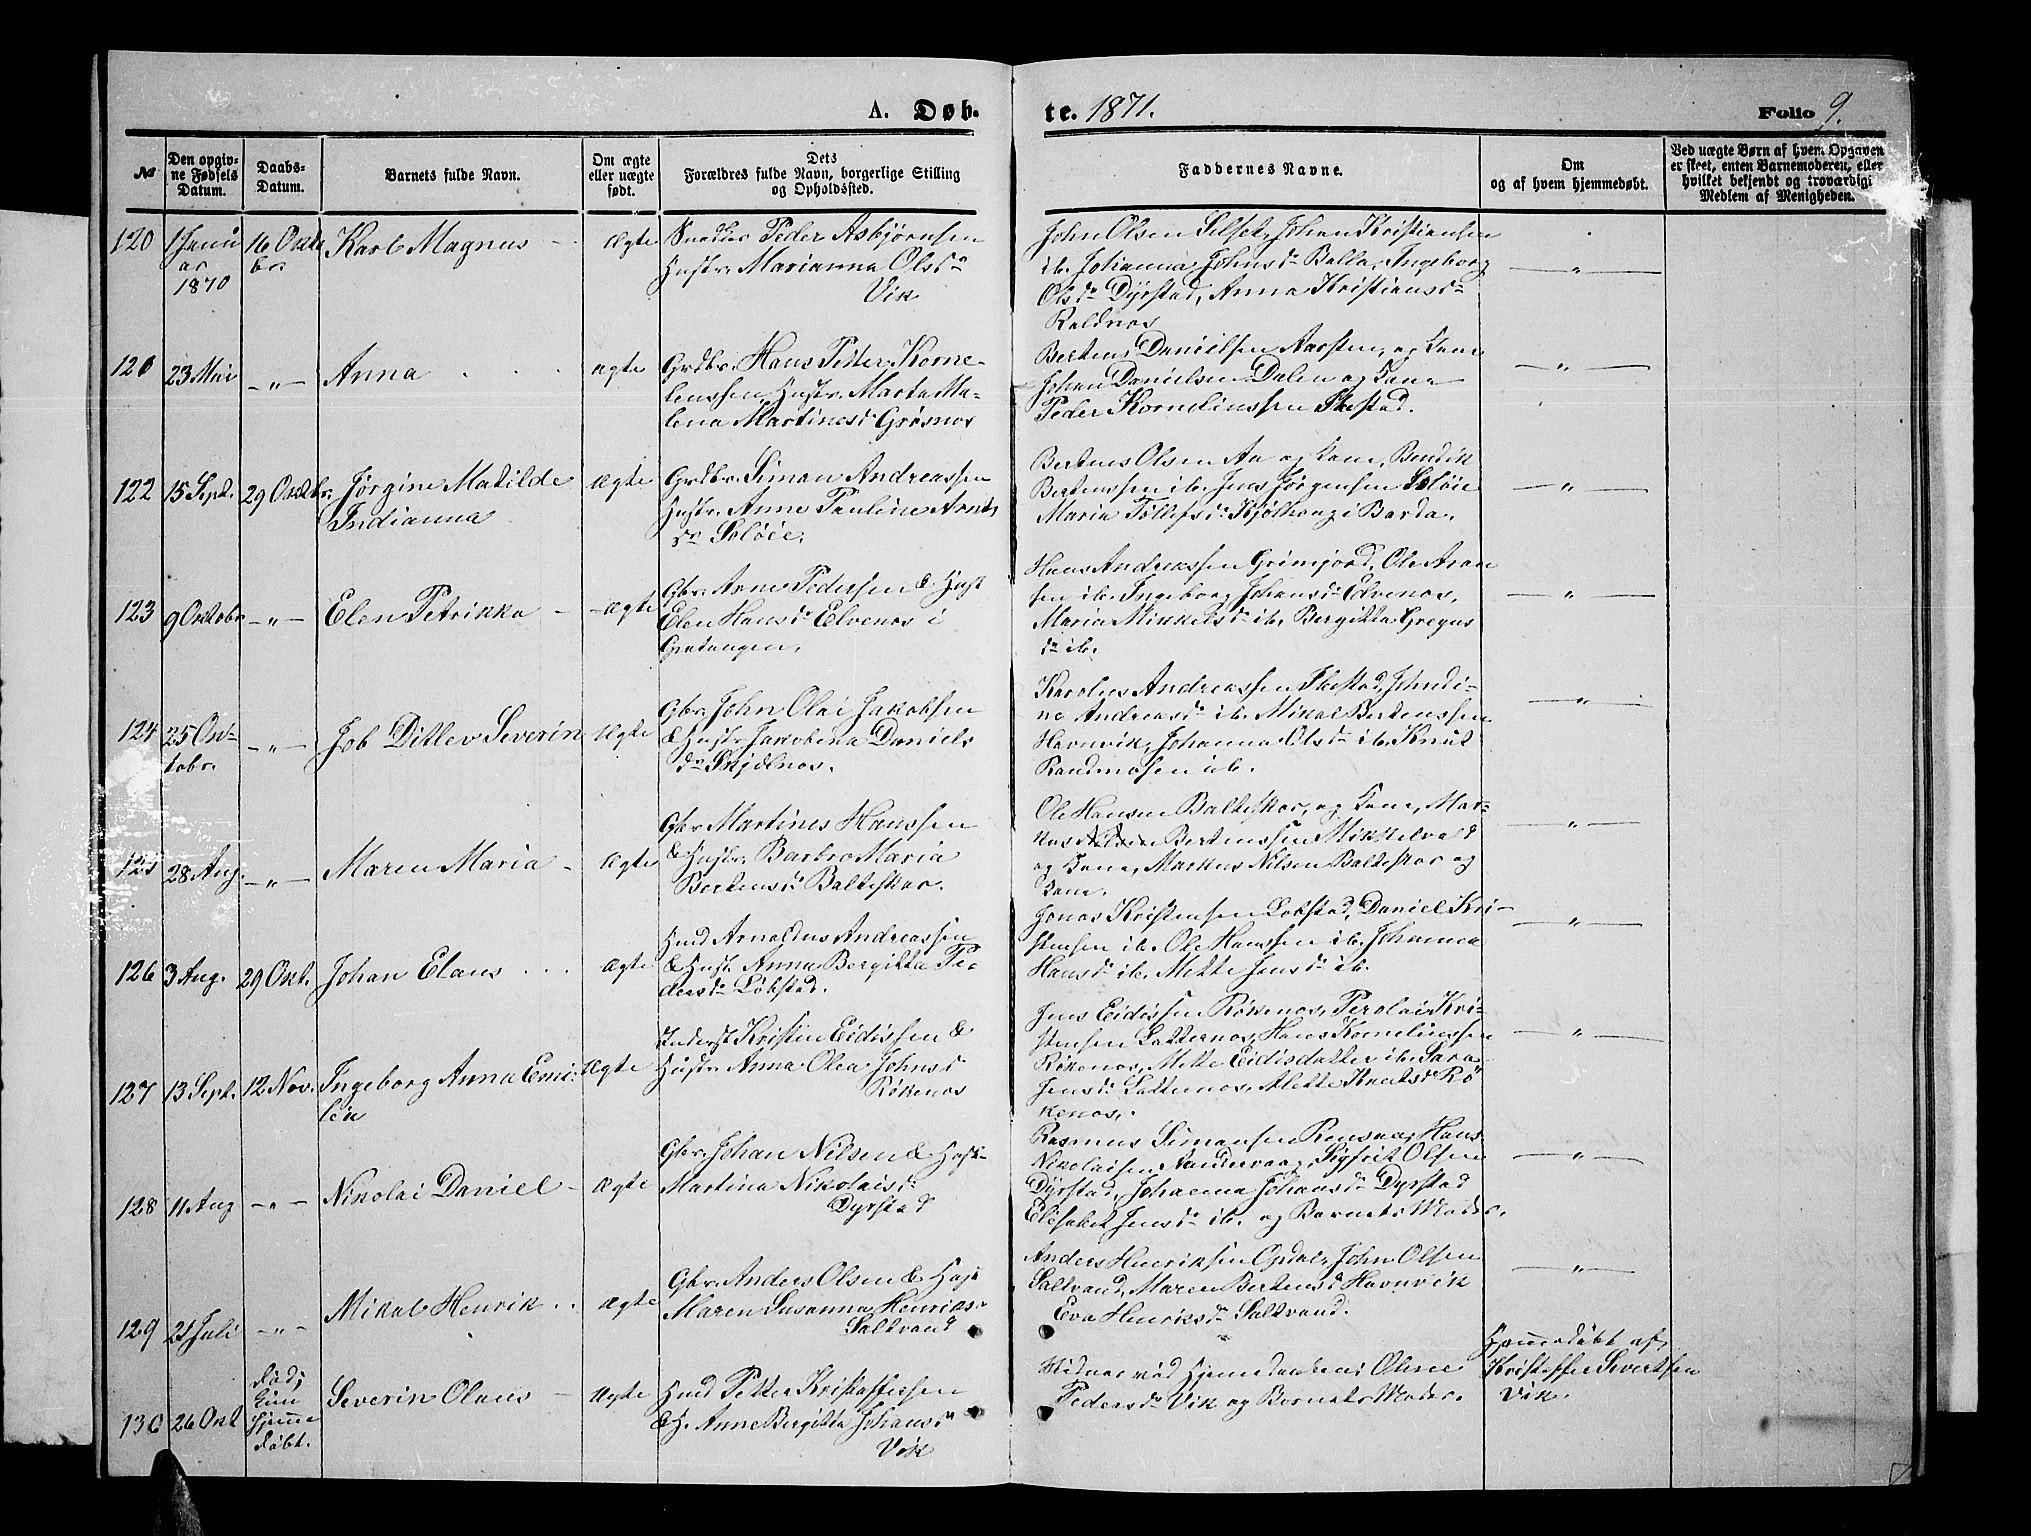 A. Døb.
te. 1871.
Folio 9.
No
Den opgiv-
ne Fødsels
Datum.
Daabs-
Datum.
Barnets fulde Navn.
Om ægte
eller uægte
født.
Dets
Forældres fulde Navn, borgerlige Stilling
og Opholdssted.
Faddernes Navne.
Om
og af hvem hjemmedøbt.
Ved uægte Børn af hvem Opgaven
er skeet, enten Barnemoderen, eller
hvilket bekjendt og troværdigt
Medlem af Menigheden.
120
1 Janu
ar
1870
16 Okto
br.
Karl Magnus
Ægte
Snedker Peder Asbjørnsen
Hustr. Marianna Olsdr
Vik
John Olsen Selset, Johan Kristiansen
ib. Johanna Johnsdr Balla, Ingeborg
Olsdr Dyrstad, Anna Kristiansdr
Roldnos
— " —
121
23 Mai
— " —
Anna
ægte
Grdbr. Hans Petter Korne-
liussen, Hustr. Marta Ma-
lena Martinesdr Grøsnos
Bertens Danielsen Aarsten, og Kone
Johan Danielsen Dalen og Kone
Peder Korneliussen Ibestad.
— " —
122
15 Sept.
29 Oktbr.
Jørgine Matilde
Indianna
Ægte
Grdbr. Simon Andreassen
Hustr. Anne Pauline Arnts
dr Soløie.
Berteus Olsen Aa og Kone, Bendik
Berteussen ib. Jens Jørgensen Soløie
Maria Tollefsdr Kjølhaug i Bardo.
— " —
123
9 Oktobr
— " —
Elen Petrikka
Ægte
Gbr. Arne Pedersen & Hust
Elen Hansdr Elvenos i
Gratangen.
Hans Andreassen Grimjord, Ole Aron
sen ib. Ingeborg Johansdr Elvenos,
Maria Mikkelsdr ib. Bergitta Gregus
dr ib.
— " —
124
25 Ok-
tobr.
— " —
Job Ditlev Severin
Ægte
Gbr. John Olai Jakobsen
& Hustr. Jakobina Daniels
dr Skjælnos.
Karolus Andreassen Ibestad, Johndi-
ne Andreasdr ib. Mikal Berteussen
Havnvik, Johanna Olsdr ib. Knut
Rasmusen ib.
— " —
125
28 Aug.
— " —
Maren Maria
Ægte
Gbr Martines Hanssen
& Hustr. Barbro Maria
Bertensdr Balteskar.
Ole Hansen Balteskar, og Kone, Mar-
kus Berteussen Mikkelvold
og Kone, Markus Nilsen Balteskar og
Kone.
— " —
126
3 Aug.
29 Okt.
Johan Elaus
Ægte
Hmd Arnoldus Andreassen
& Hust. Anna Bergitta Pe-
dersdr Løkstad.
Jonas Kristensen Løkstad, Daniel Kri-
stensen ib. Ole Hanssen ib. Johanna
Hansdr ib. Mette Jensdr ib.
— " —
127
13 Sept.
12 Nov.
Ingeborg Anna Emi-
lie
Ægte
Inderst Kristen Eidissen &
Hustr. Anna Olea Johnsd
Røkenos
Jens Eidissen Røkenos, Perolai Kri-
stensen Latternos, Hans Korneliussen
Røkenos, Mette Eidisdatter ib. Sara
Jensdr Latternos, Mette Knutsdr Rø
kenos.
— " —
128
11 Aug
— " —
Nikolai Daniel
Ægte
Gbr. Johan Nilsen & Hust.
Martina Nikolaisdr
Dyrstad
Rasmus Simonsen Rensaa, Hans
Nikolaisen Sandervaag, Sigfrit Olsen
Dyrstad, Johanna Johansdr Dyrstad
Elisabet Jensdr ib. og Barnets Moder.
— " —
129
21 Juli
— " —
Mikal Henrik
Ægte
Gbr. Anders Olsen & Hust
Maren Susanna Henriks-
Saltvand
Anders Henriksen Opdal, John Olsen
Saltvand, Maren Bertensdr Havnvik
Eva Henriksdr Saltvand.
— " —
130
26 Okt
Død;
kun
hjemme
døbt.
Severin Olaus
Ægte
Hmd Petter Kristoffersen
& H. Anne Bergitta Johansdr
Vik
Vidner ved Hjemmedaaben: Oline
Pedersdr Vik og Barnets Moder.
Hjemmedøbt af
Kristoffer Sivertsen
Vik.